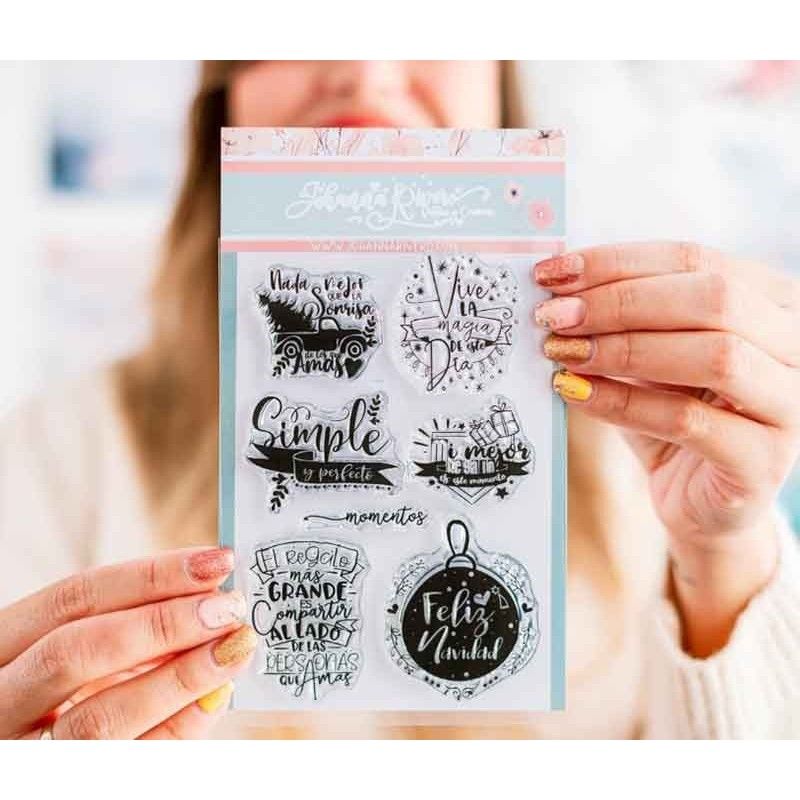 Johanna Rivero
WWW.JOHANNARIVERO.COM
Nada mejor
que la
Sonrisa
de los que
Amas
Vive
la
magia
de este
Día
Simple
y perfecto
Mi mejor
es este momento
momentos
El Regalo
más
GRANDE
es
Compartir
AL LADO
DE LAS
PERSONAS
QUE Amas
Feliz
Navidad